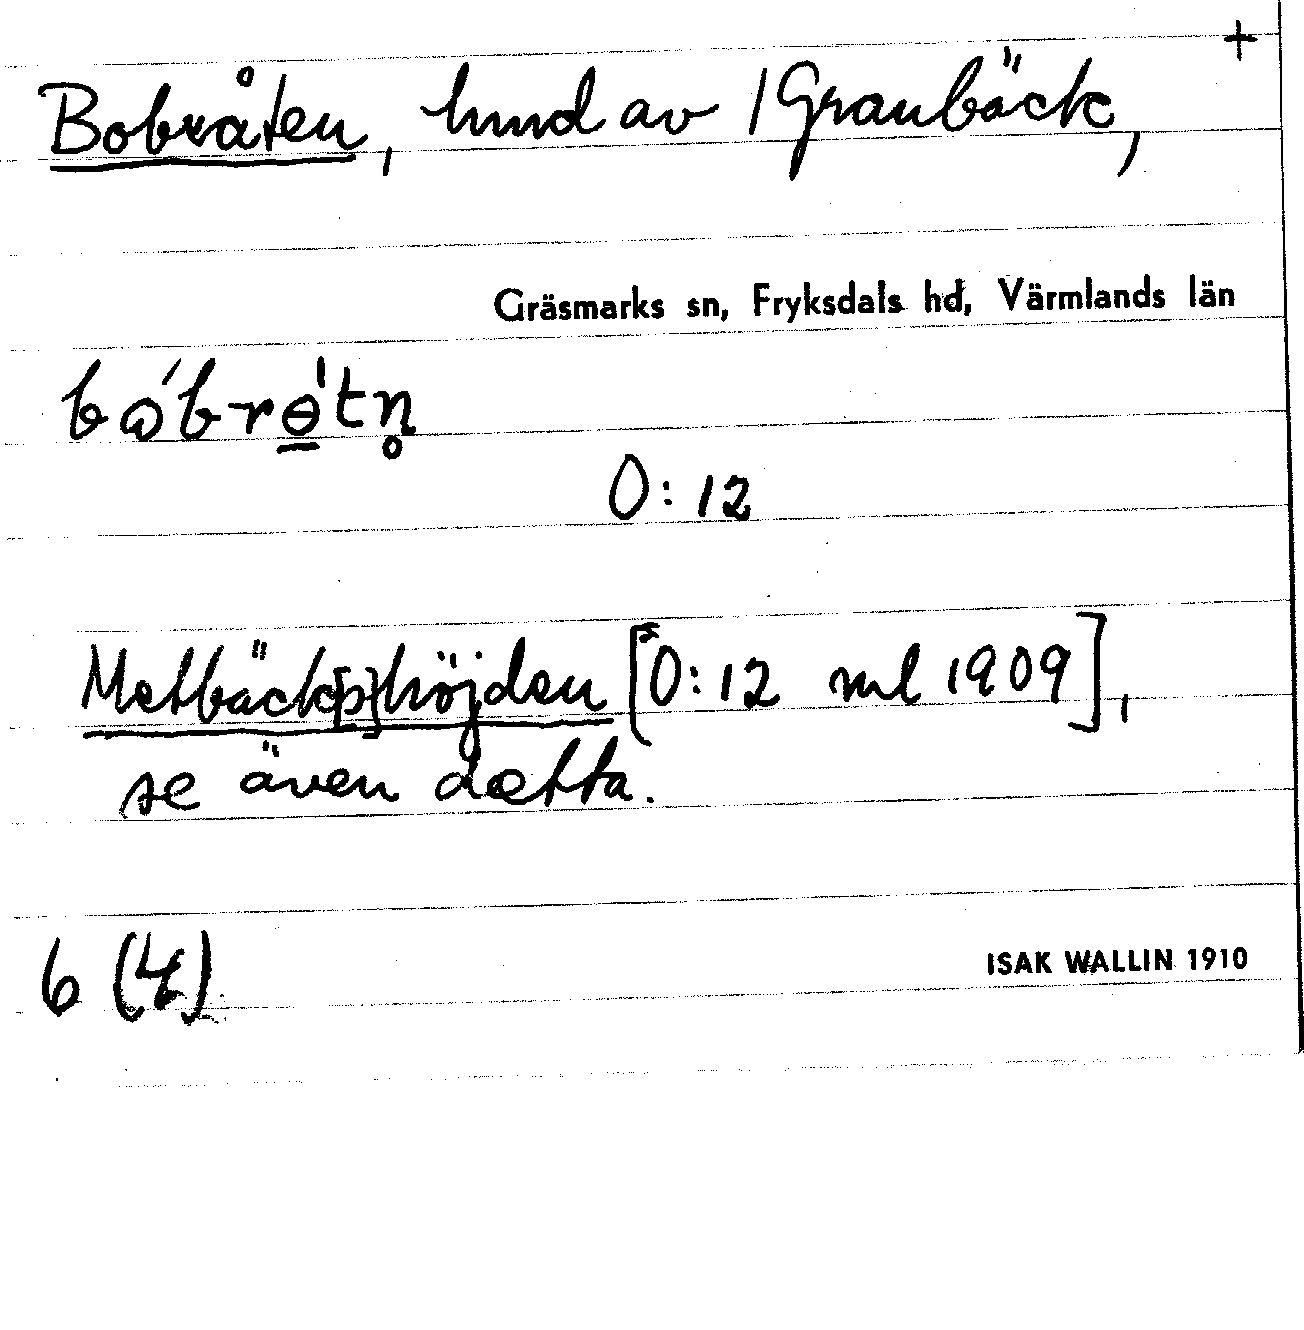 +
Bobråten, hmd av /Granbäck,
Gräsmarks sn, Fryksdals hd, Värmlands län
0:12
Metbäck[s]höjden [0:12 ml 1909],
se även detta.
6 (4)
ISAK WALLIN 1910